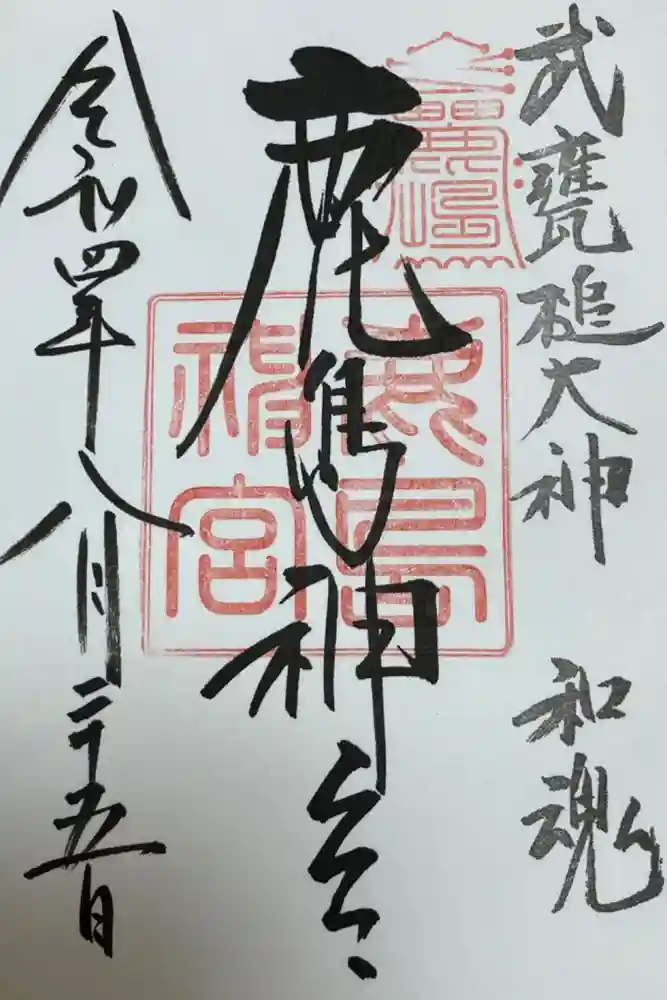 武甕槌大神 和魂
鹿島神宮
鹿島神宮
令和四年八月二十五日